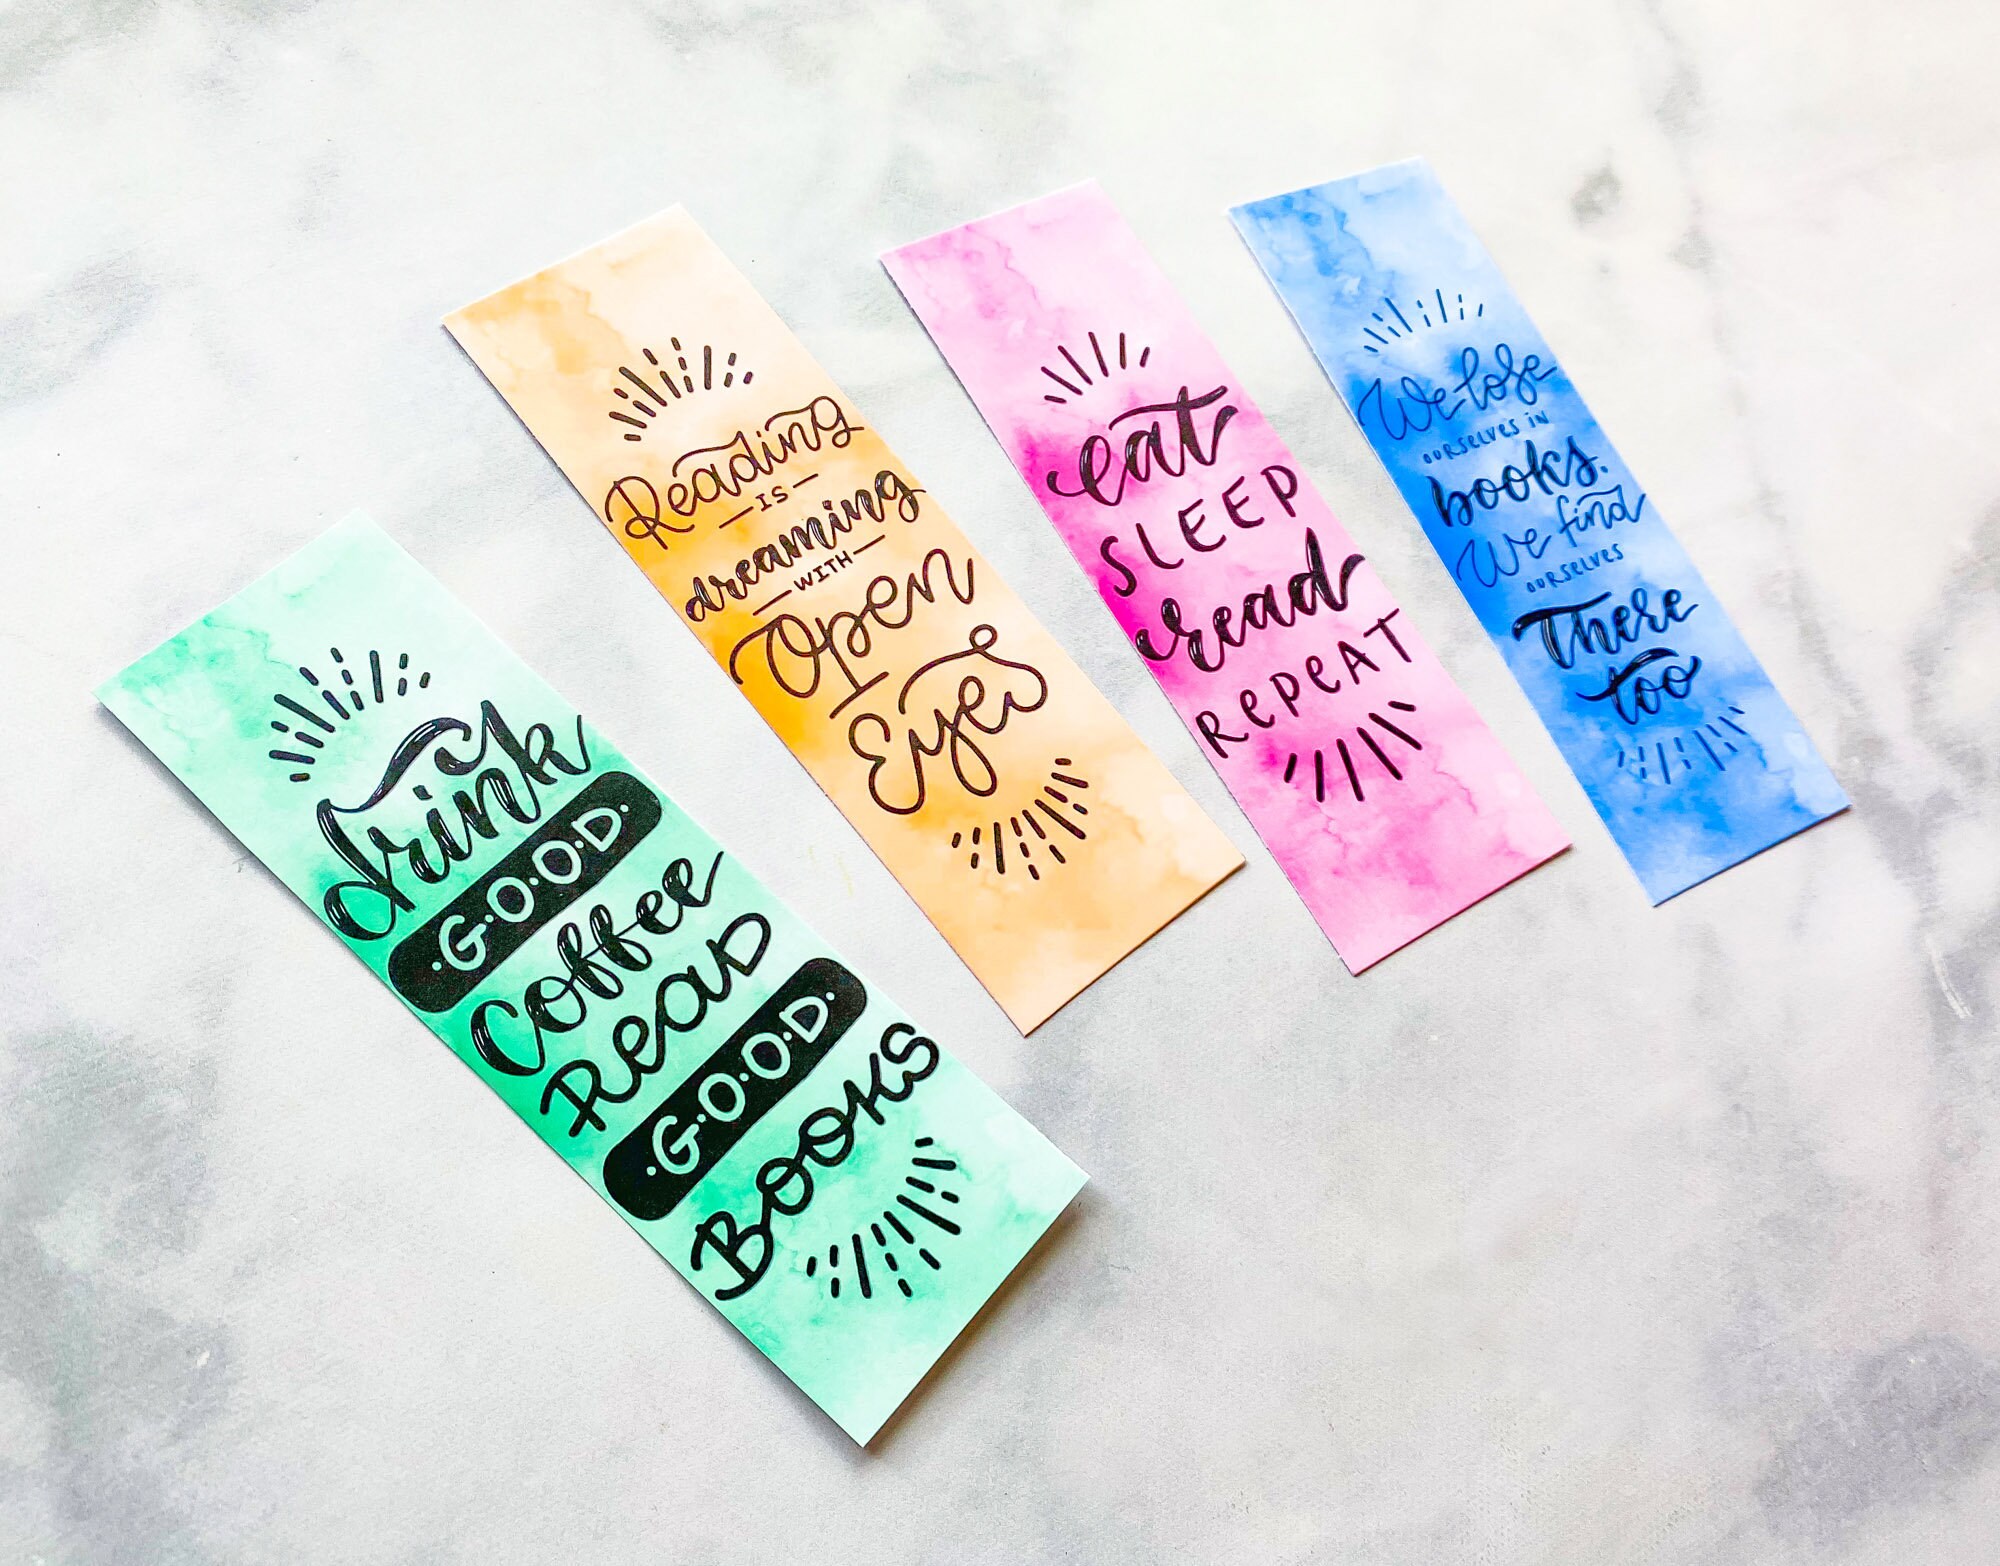 drink
G·O·O·D
Coffee
Read
G·O·O·D
Books
Reading
IS
dreaming
WITH
Open
Eyes
eat
SLEEP
read
REPEAT
We lose
OURSELVES IN
books.
We find
OURSELVES
There
too